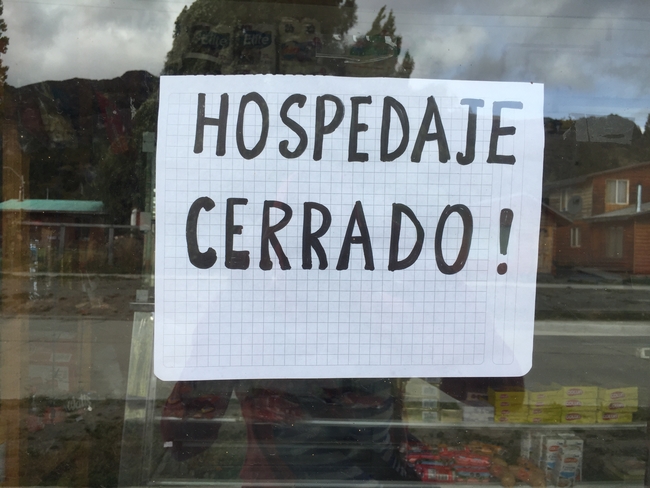 HOSPEDAJE
CERRADO!